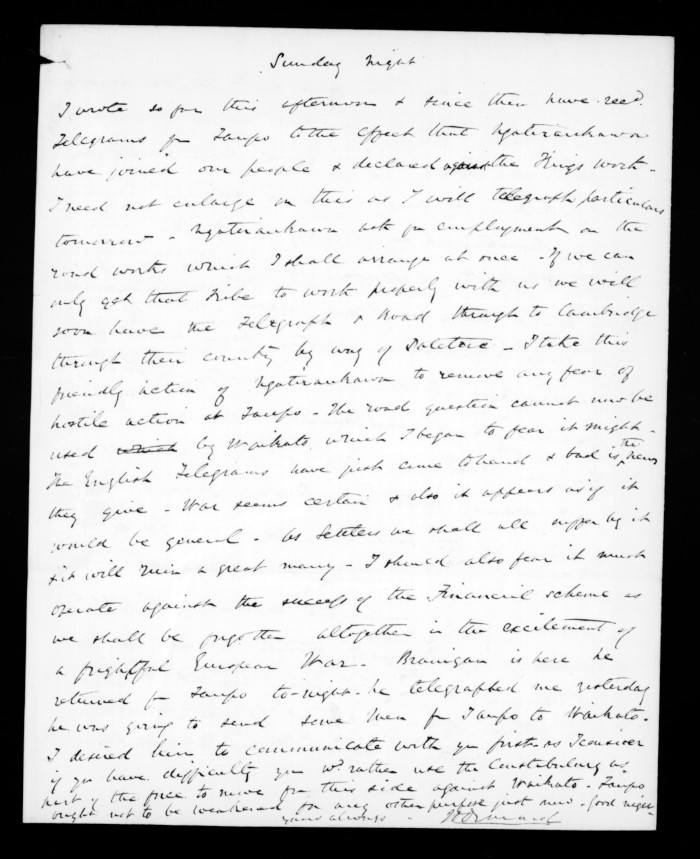 Sunday night
I wrote so far this afternoon & since then have recd.
Telegrams fm Taupo to the effect that Ngatiraukawa
have joined our people & declared against the Kings work -
I need not enlarge on this as I will telegraph particulars
tomorrow - Ngatiraukawa ask for employment on the
road works which I shall arrange at once - If we can
only get that tribe to work properly with us we will
soon have the Telegraph & Road through to Cambridge
through their country by way of - I take this
friendly action of Ngatiraukawa to remove any fear of
hostile action at Taupo - The road question cannot now be
used which by Waikato which I began to fear it might -
The English Telegrams have just come to hand & bad is the news
they give - War seems certain & also it appears as if it
would be general - As Settlers we shall all suffer by it
& it will ruin a great many - I should also fear it much
operate against the success of the Financial scheme as
we shall be forgotten altogether in the excitement of
a frightful European War - Branigan is here he
returned fm Taupo to-night - he telegraphed me yesterday
he was going to send some men fm Taupo to Waikato -
I desired him to communicate with you first as I consider
if you have difficulty you wd. rather use the Constabulary as
part of the force to move fm this side against Waikato - Taupo
ought not to be weakened for any other purpose just now - Good night
yours always - JD Ormond